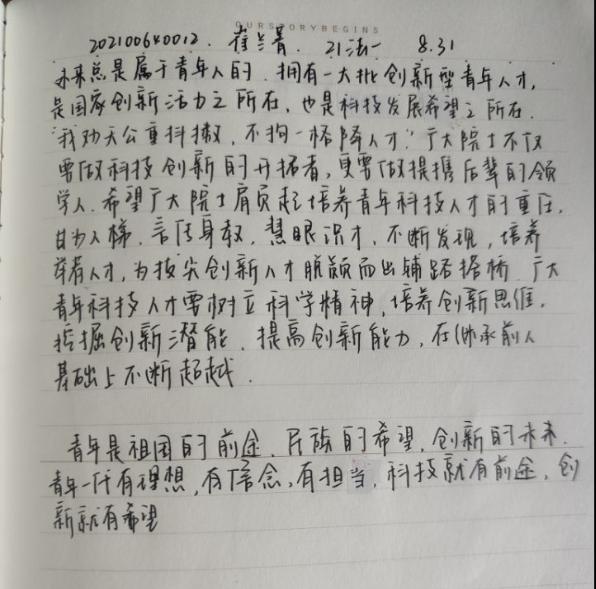 OURSTORYBEGINS
202100640012. 崔兰菁. 21法一 8.31
未来总是属于青年人的.拥有一大批创新型青年人才,
是国家创新活力之所在,也是科技发展希望之所在.
"我劝天公重抖擞,不拘一格降人才."广大院士不仅
要做科技创新的开拓者,更要做提携后辈的领
学人.希望广大院士肩负起培养青年科技人才的重任,
甘为人梯,言传身教,慧眼识才,不断发现,培养
举荐人才,为拔尖创新人才脱颖而出铺路搭桥.广大
青年科技人才要树立科学精神,培养创新思维,
挖掘创新潜能,提高创新能力,在继承前人
基础上不断超越.
青年是祖国的前途,民族的希望,创新的未来.
青年一代有理想,有信念,有担当,科技就有前途,创
新就有希望